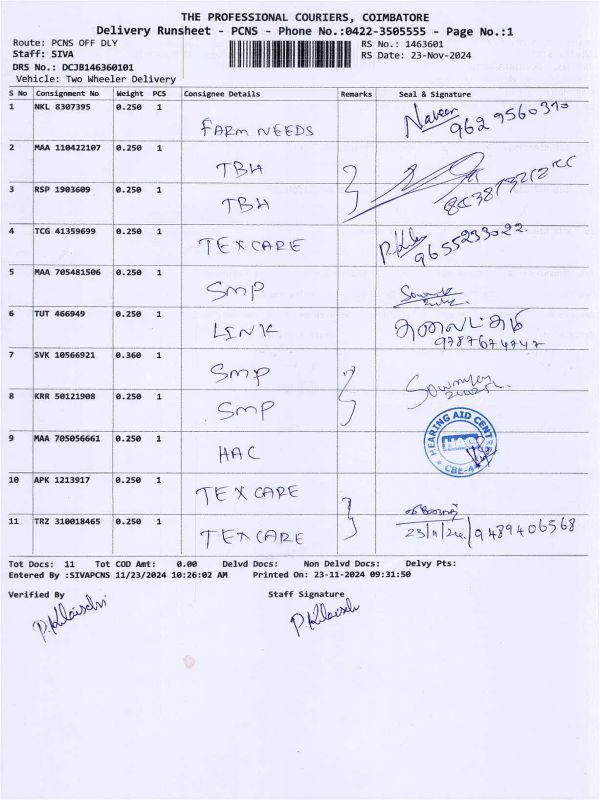 THE PROFESSIONAL COURIERS, COIMBATORE
Delivery Runsheet - PCNS - Phone No.:0422-3505555 - Page No.:1
Route: PCNS OFF DLY RS No.: 1463601
Staff: SIVA RS Date: 23-Nov-2024
DRS No.: DCJB146360101
Vehicle: Two Wheeler Delivery
S No Consignment No Weight PCS Consignee Details Remarks Seal & Signature
1 NKL 8307395 0.250 1 FARM NEEDS Naveen 9629560310
2 MAA 110422107 0.250 1 TBH
3 RSP 1903609 0.250 1 TBH
4 TCG 41359699 0.250 1 TEXCARE 9655233022
5 MAA 705481506 0.250 1 SMP
6 TUT 466949 0.250 1 LINK
9787674747
7 SVK 10566921 0.360 1 SMP Sowmiya
8 KRR 50121908 0.250 1 SMP
9 MAA 705056661 0.250 1 HAC HEARING AID CENTRE HAC
10 APK 1213917 0.250 1 TEXCARE
11 TRZ 310018465 0.250 1 TEXCARE 23/11/24 9489406568
Tot Docs: 11 Tot COD Amt: 0.00 Delvd Docs: Non Delvd Docs: Delvy Pts:
Entered By :SIVAPCNS 11/23/2024 10:26:02 AM Printed On: 23-11-2024 09:31:50
Verified By Staff Signature